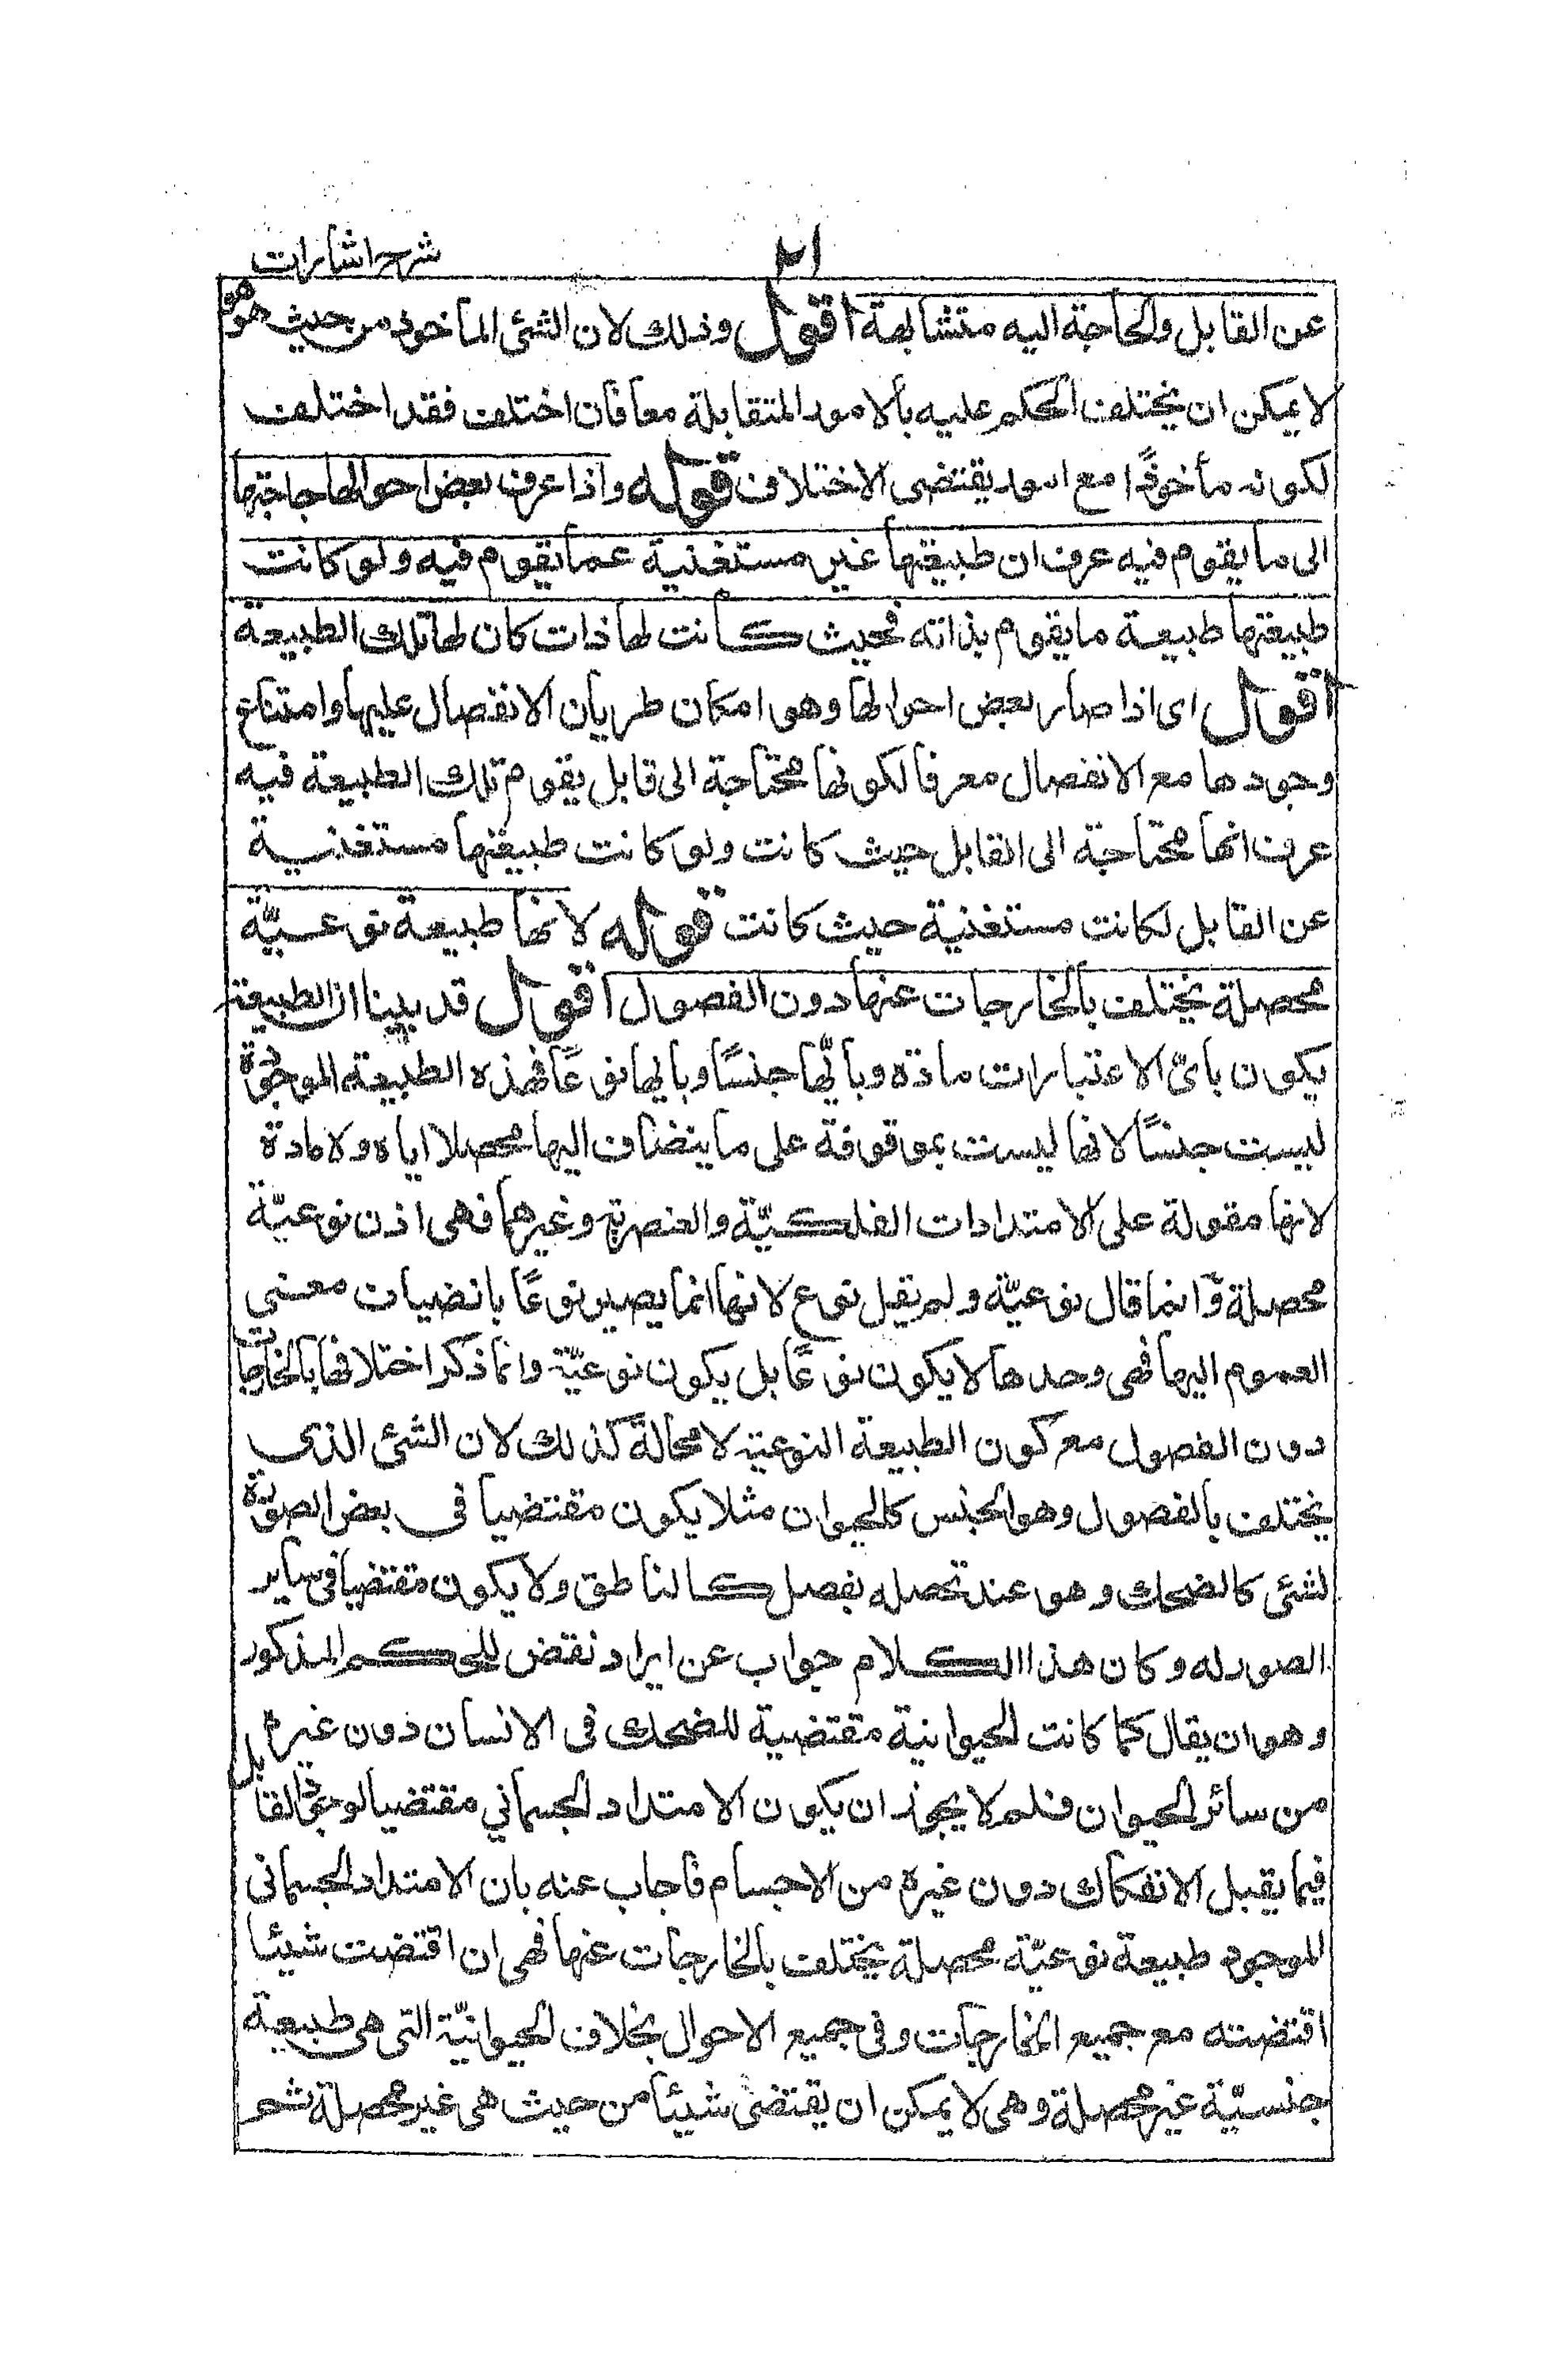 ٢١
شرح اشارات
عن القابل والحاجة اليه متشابهة اقول وذلك لان الشئ المأخوذ من حيث هو هو
لا يمكن ان يختلف الحكم عليه بالامور المتقابلة معا فان اختلف فقد اختلف
لكونه مأخوذًا مع امور يقتضى الاختلاف قوله واذا عرف بعض احوالها حاجتها
الى ما يقوم فيه عرف ان طبيعتها غير مستغنية عما يقوم فيه ولو كانت
طبيعتها طبيعة ما يقوم بذاته فحيث كانت لها ذات كان لها تلك الطبيعة
اقول اى اذا صار بعض احوالها وهو امكان طريان الانفصال عليها وامتناع
وجودها مع الانفصال معرفا لكونها محتاجة الى قابل يقوم تلك الطبيعة فيه
عرف انها محتاجة الى القابل حيث كانت ولو كانت طبيعتها مستغنية
عن القابل لكانت مستغنية حيث كانت قوله لانها طبيعة نوعيّة
محصلة يختلف بالخارجات عنها دون الفصول اقول قد بينا ان الطبيعة
يكون باىّ الاعتبارات مادّة وبايّها جنسًا وبايها نوعًا فهذه الطبيعة الموجودة
ليست جنسًا لانها ليست بموقوفة على ما ينضاف اليها محصلا اياه ولا مادة
لانها مقولة على الامتدادات الفلكيّة والعنصريّة وغيرهما فهى اذن نوعيّة
محصلة وانما قال نوعيّة ولم يقل نوع لانها انما يصير نوعًا بانضياف معنى
العموم اليها فهى وحدها لا يكون نوعًا بل يكون نوعيّة وانما ذكر اختلافها بالخارجات
دون الفصول مع كون الطبيعة النوعيّة لا محالة كذلك لان الشئ الذى
يختلف بالفصول وهو الجنس كالحيوان مثلا يكون مقتضيا فى بعض الصورة
لشئ كالضحك وهو عند تحصله بفصل كالناطق ولا يكون مقتضيا فى ساير
الصور له وكان هذا الكلام جواب عن ايراد نقض للحكم المذكور
وهو ان يقال كما كانت الحيوانية مقتضية للضحك فى الانسان دون غيره
من سائر الحيوان فلم لا يجوز ان يكون الامتداد الجسمانى مقتضيا لوجود القابل
فيما يقبل الانفكاك دون غيره من الاجسام فاجاب عنه بان الامتداد الجسمانى
الموجود طبيعة نوعيّة محصلة يختلف بالخارجات عنها فهى ان اقتضت شيئا
اقتضته مع جميع الخارجات وفى جميع الاحوال بخلاف الحيوانيّة التى هى طبيعة
جنسيّة غير محصلة وهى لا يمكن ان يقتضى شيئا من حيث هى غير محصلة